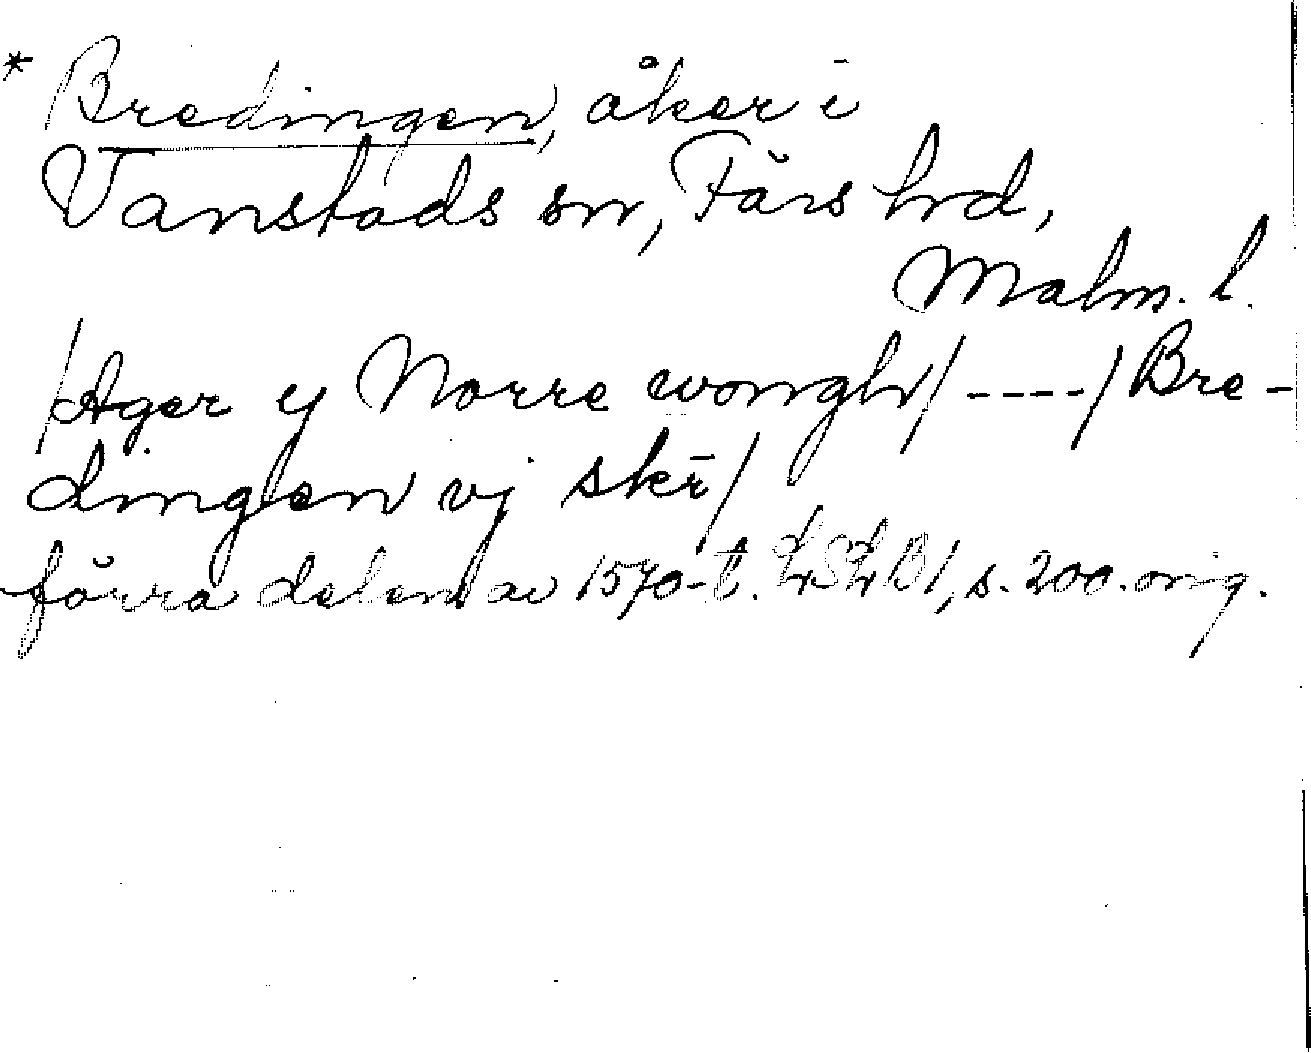 * Bredingen, åker i
Vanstads sn, Färs hrd,
Malm. l.
/Ager y Norre wongh/ ----/ Bre-
dingen vj skr/
förra delen av 1570-t. LSLB1, s. 200. orig.